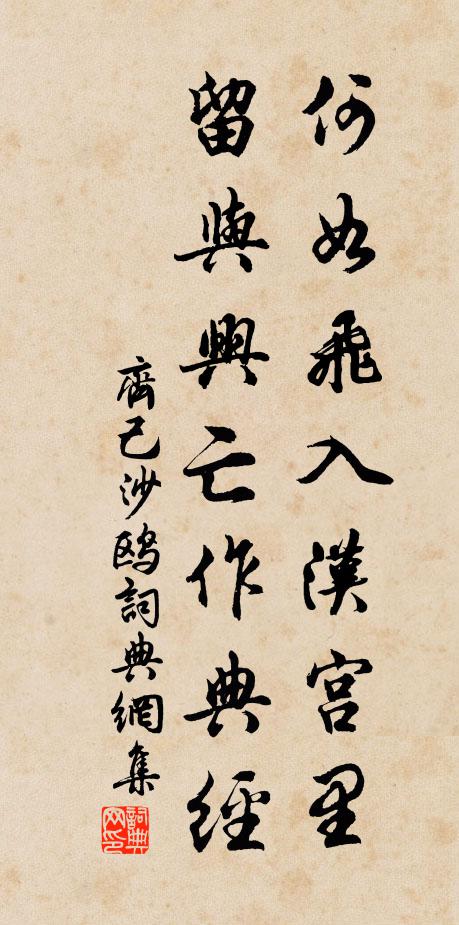 何如飛入漢宫里
留與興亡作典經
齊己沙鸥詞典網集
詞典网印